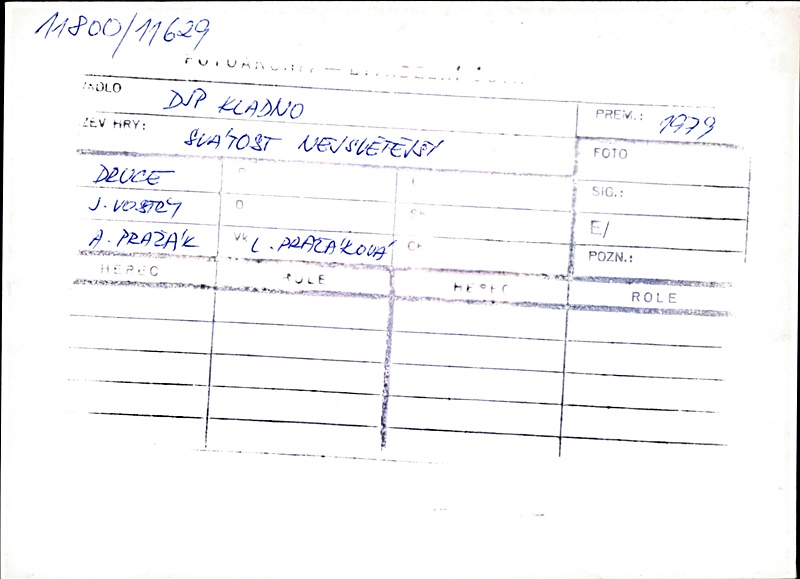 11800/11629
DIVADLO DJP KLADNO PREM.: 1979
NÁZEV HRY: SVÁTOST NEJSVĚTĚJŠÍ FOTO
DRUCE
SIG.:
J. VOSTRÝ D E/
A. PRAŽÁK VK L. PRAŽÁKOVÁ CH POZN.:
HEREC ROLE HEREC ROLE